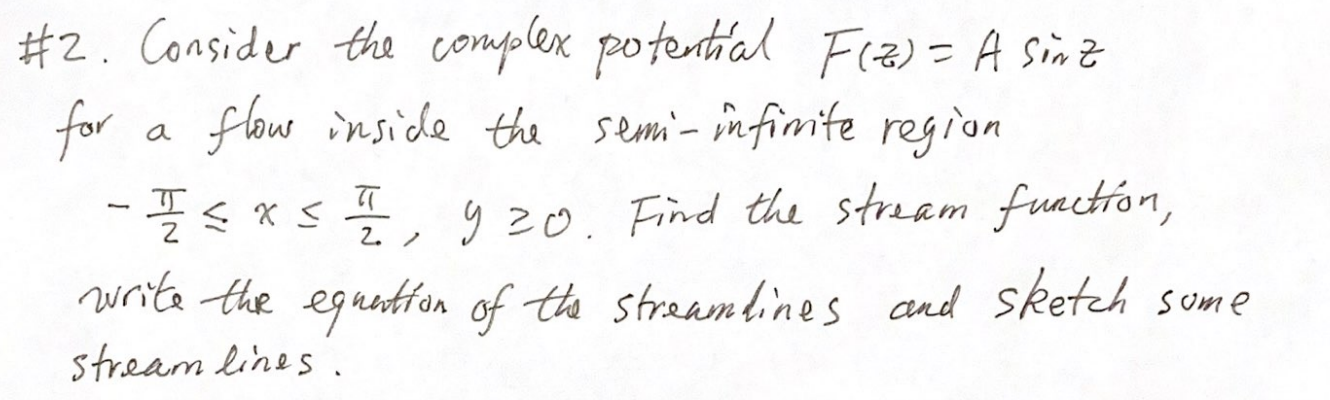 #2. Consider the complex potential F(z) = A sin z
for a flow inside the semi-infinite region
- π/2 ≤ x ≤ π/2, y ≥ 0. Find the stream function,
write the equation of the streamlines and sketch some
stream lines.